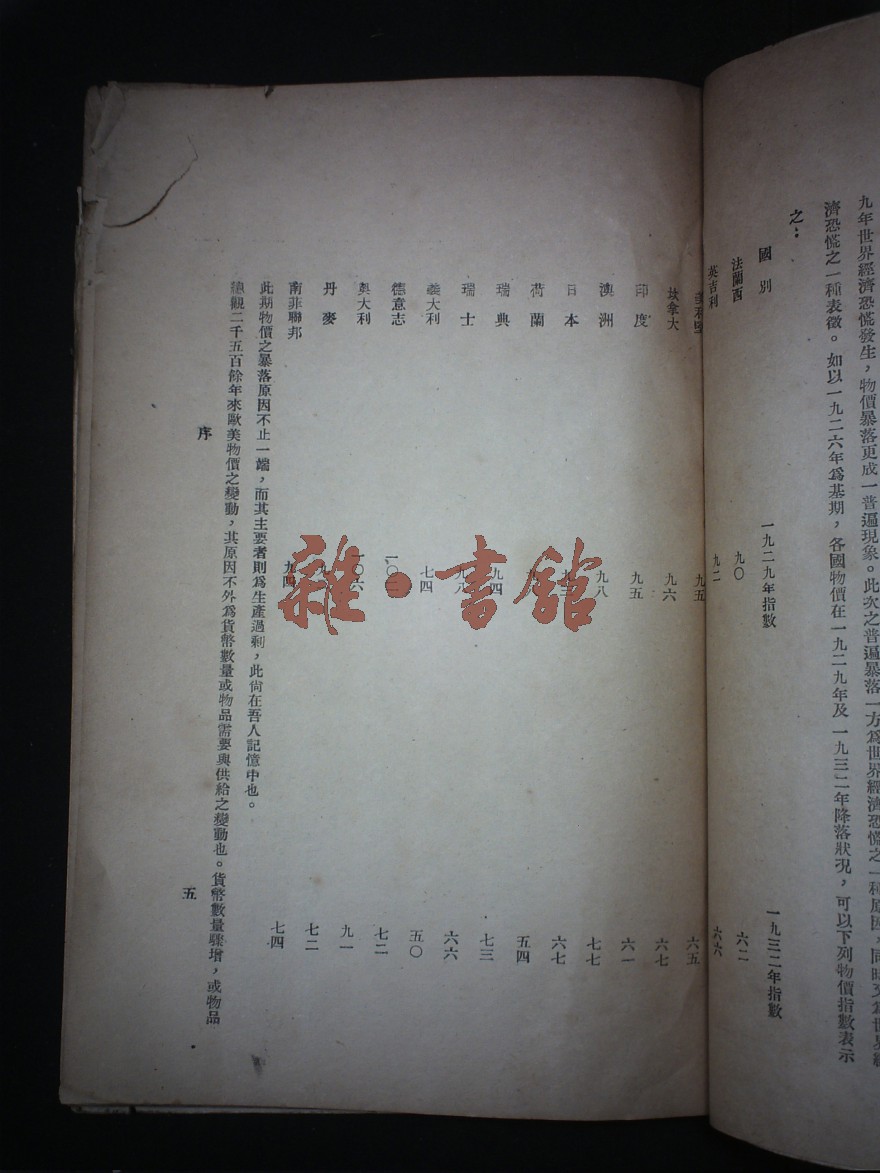 九年世界經濟恐慌發生，物價暴落更成一普遍現象。此次之普遍暴落一方爲世界經濟恐慌之一種原因，同時又爲世界經
濟恐慌之一種表徵。如以一九二六年爲基期，各國物價在一九二九年及一九三二年降落狀況，可以下列物價指數表示
之：
國別 一九二九年指數 一九三二年指數
法蘭西 九〇 六二
英吉利 九二 六六
美利堅 九五 六五
坎拿大 九六 六七
印度 九五 六一
澳洲 九八 七七
日本 六七
荷蘭 五四
瑞典 九四 七三
瑞士 九八 六六
義大利 七四 五〇
德意志 七二
奧大利 一〇六 九一
丹麥 七二
南菲聯邦 九四 七四
此期物價之暴落原因不止一端，而其主要者則爲生產過剩，此尙在吾人記憶中也。
總觀二千五百餘年來歐美物價之變動，其原因不外爲貨幣數量或物品需要與供給之變動也。貨幣數量驟增，或物品
序
五
雜·書館